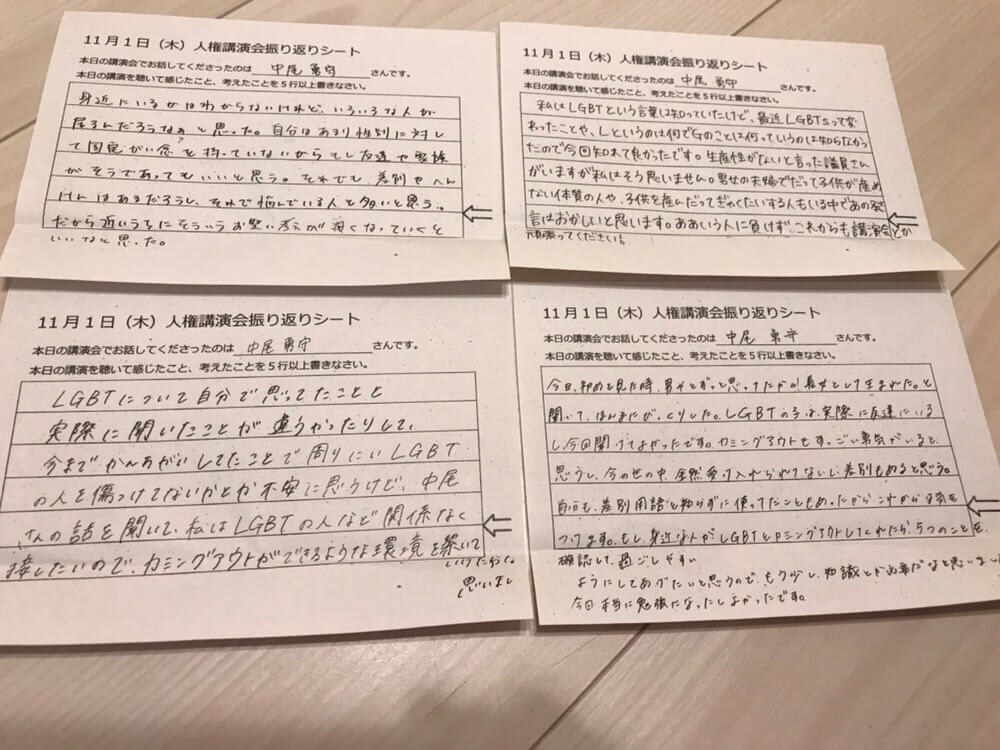 11月1日（木）人権講演会振り返りシート
本日の講演会でお話してくださったのは 中尾 勇守 さんです。
本日の講演を聴いて感じたこと、考えたことを5行以上書きなさい。
身近にいるかはわからないけれど、いろいろな人が
居るんだろうなぁ と思った。自分はあまり性別に対し
て固定がい念を持っていないからもし友達や家族
がそうであってもいいと思う。それでも、差別やへん
けんはあるだろうし、それで悩んでいる人も多いと思う。
だから近いうちにそういうお堅い考えが無くなっていくと
いいなと思った。
11月1日（木）人権講演会振り返りシート
本日の講演会でお話してくださったのは 中尾 勇守 さんです。
本日の講演を聴いて感じたこと、考えたことを5行以上書きなさい。
私はLGBTという言葉は知っていたけど、最近LGBTsって変
わったことや、Lというのは何でGのことは何っていうのは知らなかっ
たので今回知れて良かったです。生産性がないと言った議員さん
がいますが私はそう思いません。男女の夫婦でだって子供が産め
ない体質の人や、子供を産んだってぎゃくたいする人もいる中であの発
言はおかしいと思います。ああいう人に負けず、これからも講演会とか
頑張ってください！
11月1日（木）人権講演会振り返りシート
本日の講演会でお話してくださったのは 中尾 勇守 さんです。
本日の講演を聴いて感じたこと、考えたことを5行以上書きなさい。
LGBTについて自分で思ってたことと
実際に聞いたことが違うかったりして、
今までかんちがいしてたことで周りにいLGBT
の人を傷つけてないかとか不安に思うけど、中尾
さんの話を聞いて、私はLGBTの人など関係なく
接したいので、カミングアウトができるような環境を築いて
いけたらなと
思いまし
11月1日（木）人権講演会振り返りシート
本日の講演会でお話してくださったのは 中尾 勇守 さんです。
本日の講演を聴いて感じたこと、考えたことを5行以上書きなさい。
今日、初めて見た時、男やとずっと思ってたから、長女として生まれた。と
聞いて、ほんまにびっくりした。LGBTの子は、実際に友達にいる
し、今回聞けてよかったです。カミングアウトもすっごい勇気がいると
思うし、今の世の中、全然受け入れられてないし、差別もあると思う。
自分も、差別用語と知らずに使ってたこともあったからこれから気を
つけます。もし、身近な人がLGBTとカミングアウトしてくれたら、5つのことを
確認して、過ごしやすい
ようにしてあげたいと思うので、もう少し、知識とか必要だなと思いまし
今回、本当に勉強になったしよかったです。